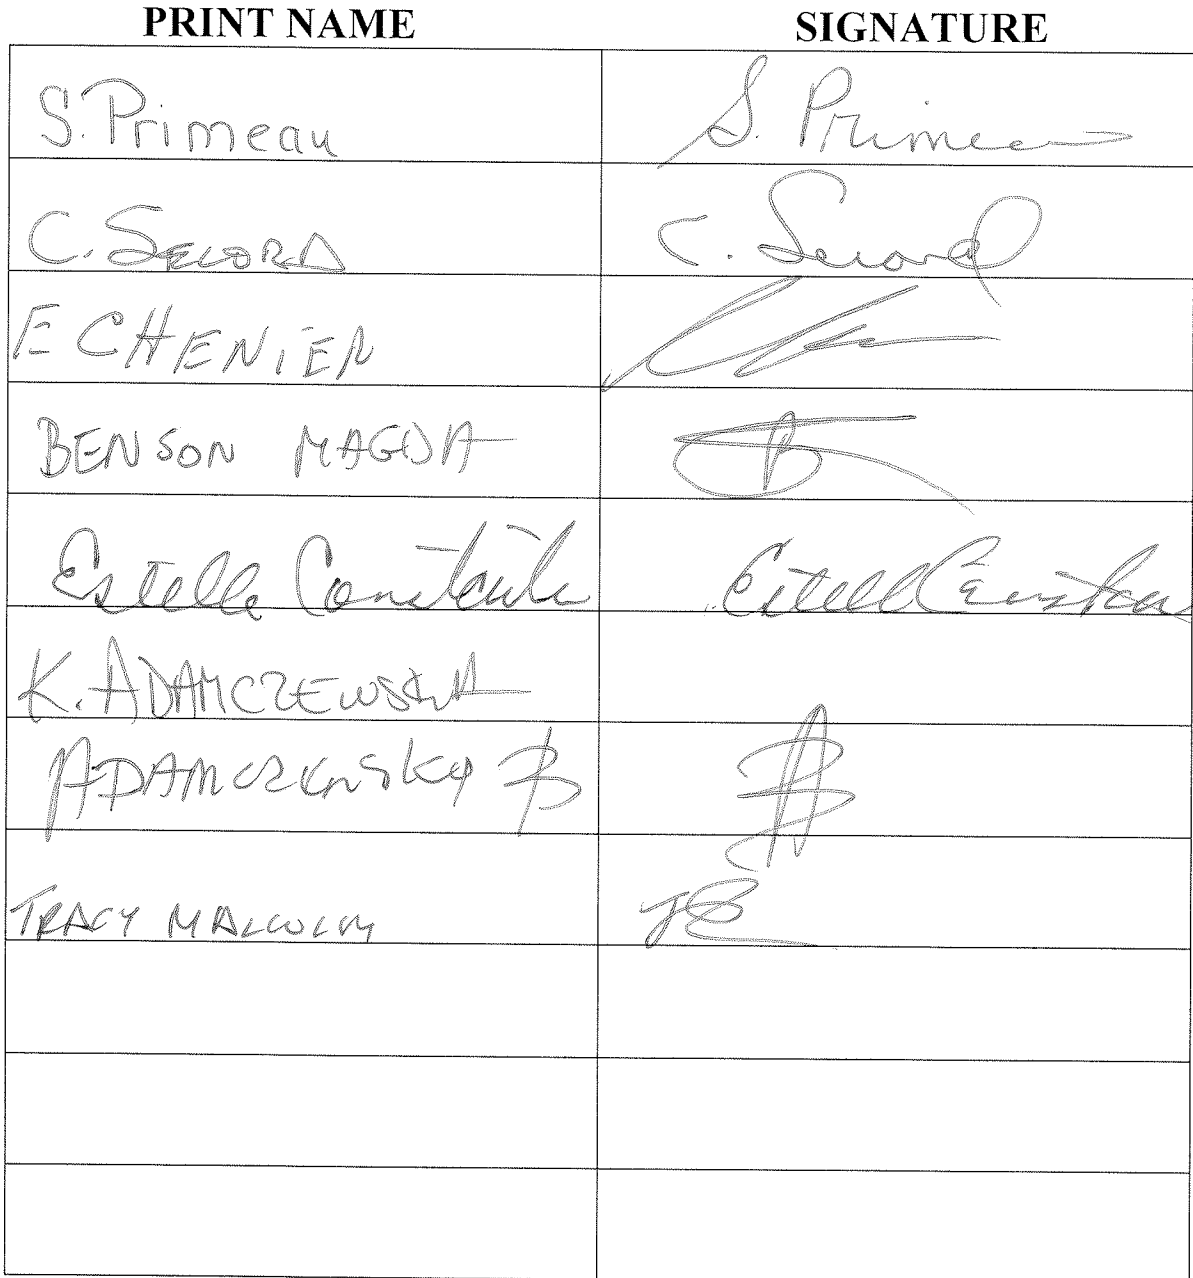 PRINT NAME SIGNATURE
S. Primeau S. Primeau
C. SECORD C. Secord
E CHENIER
BENSON MAGDA B
Estelle Estelle
K. ADAMCZEWSKA
ADAMCZEWSKY B
TRACY MALCOLM